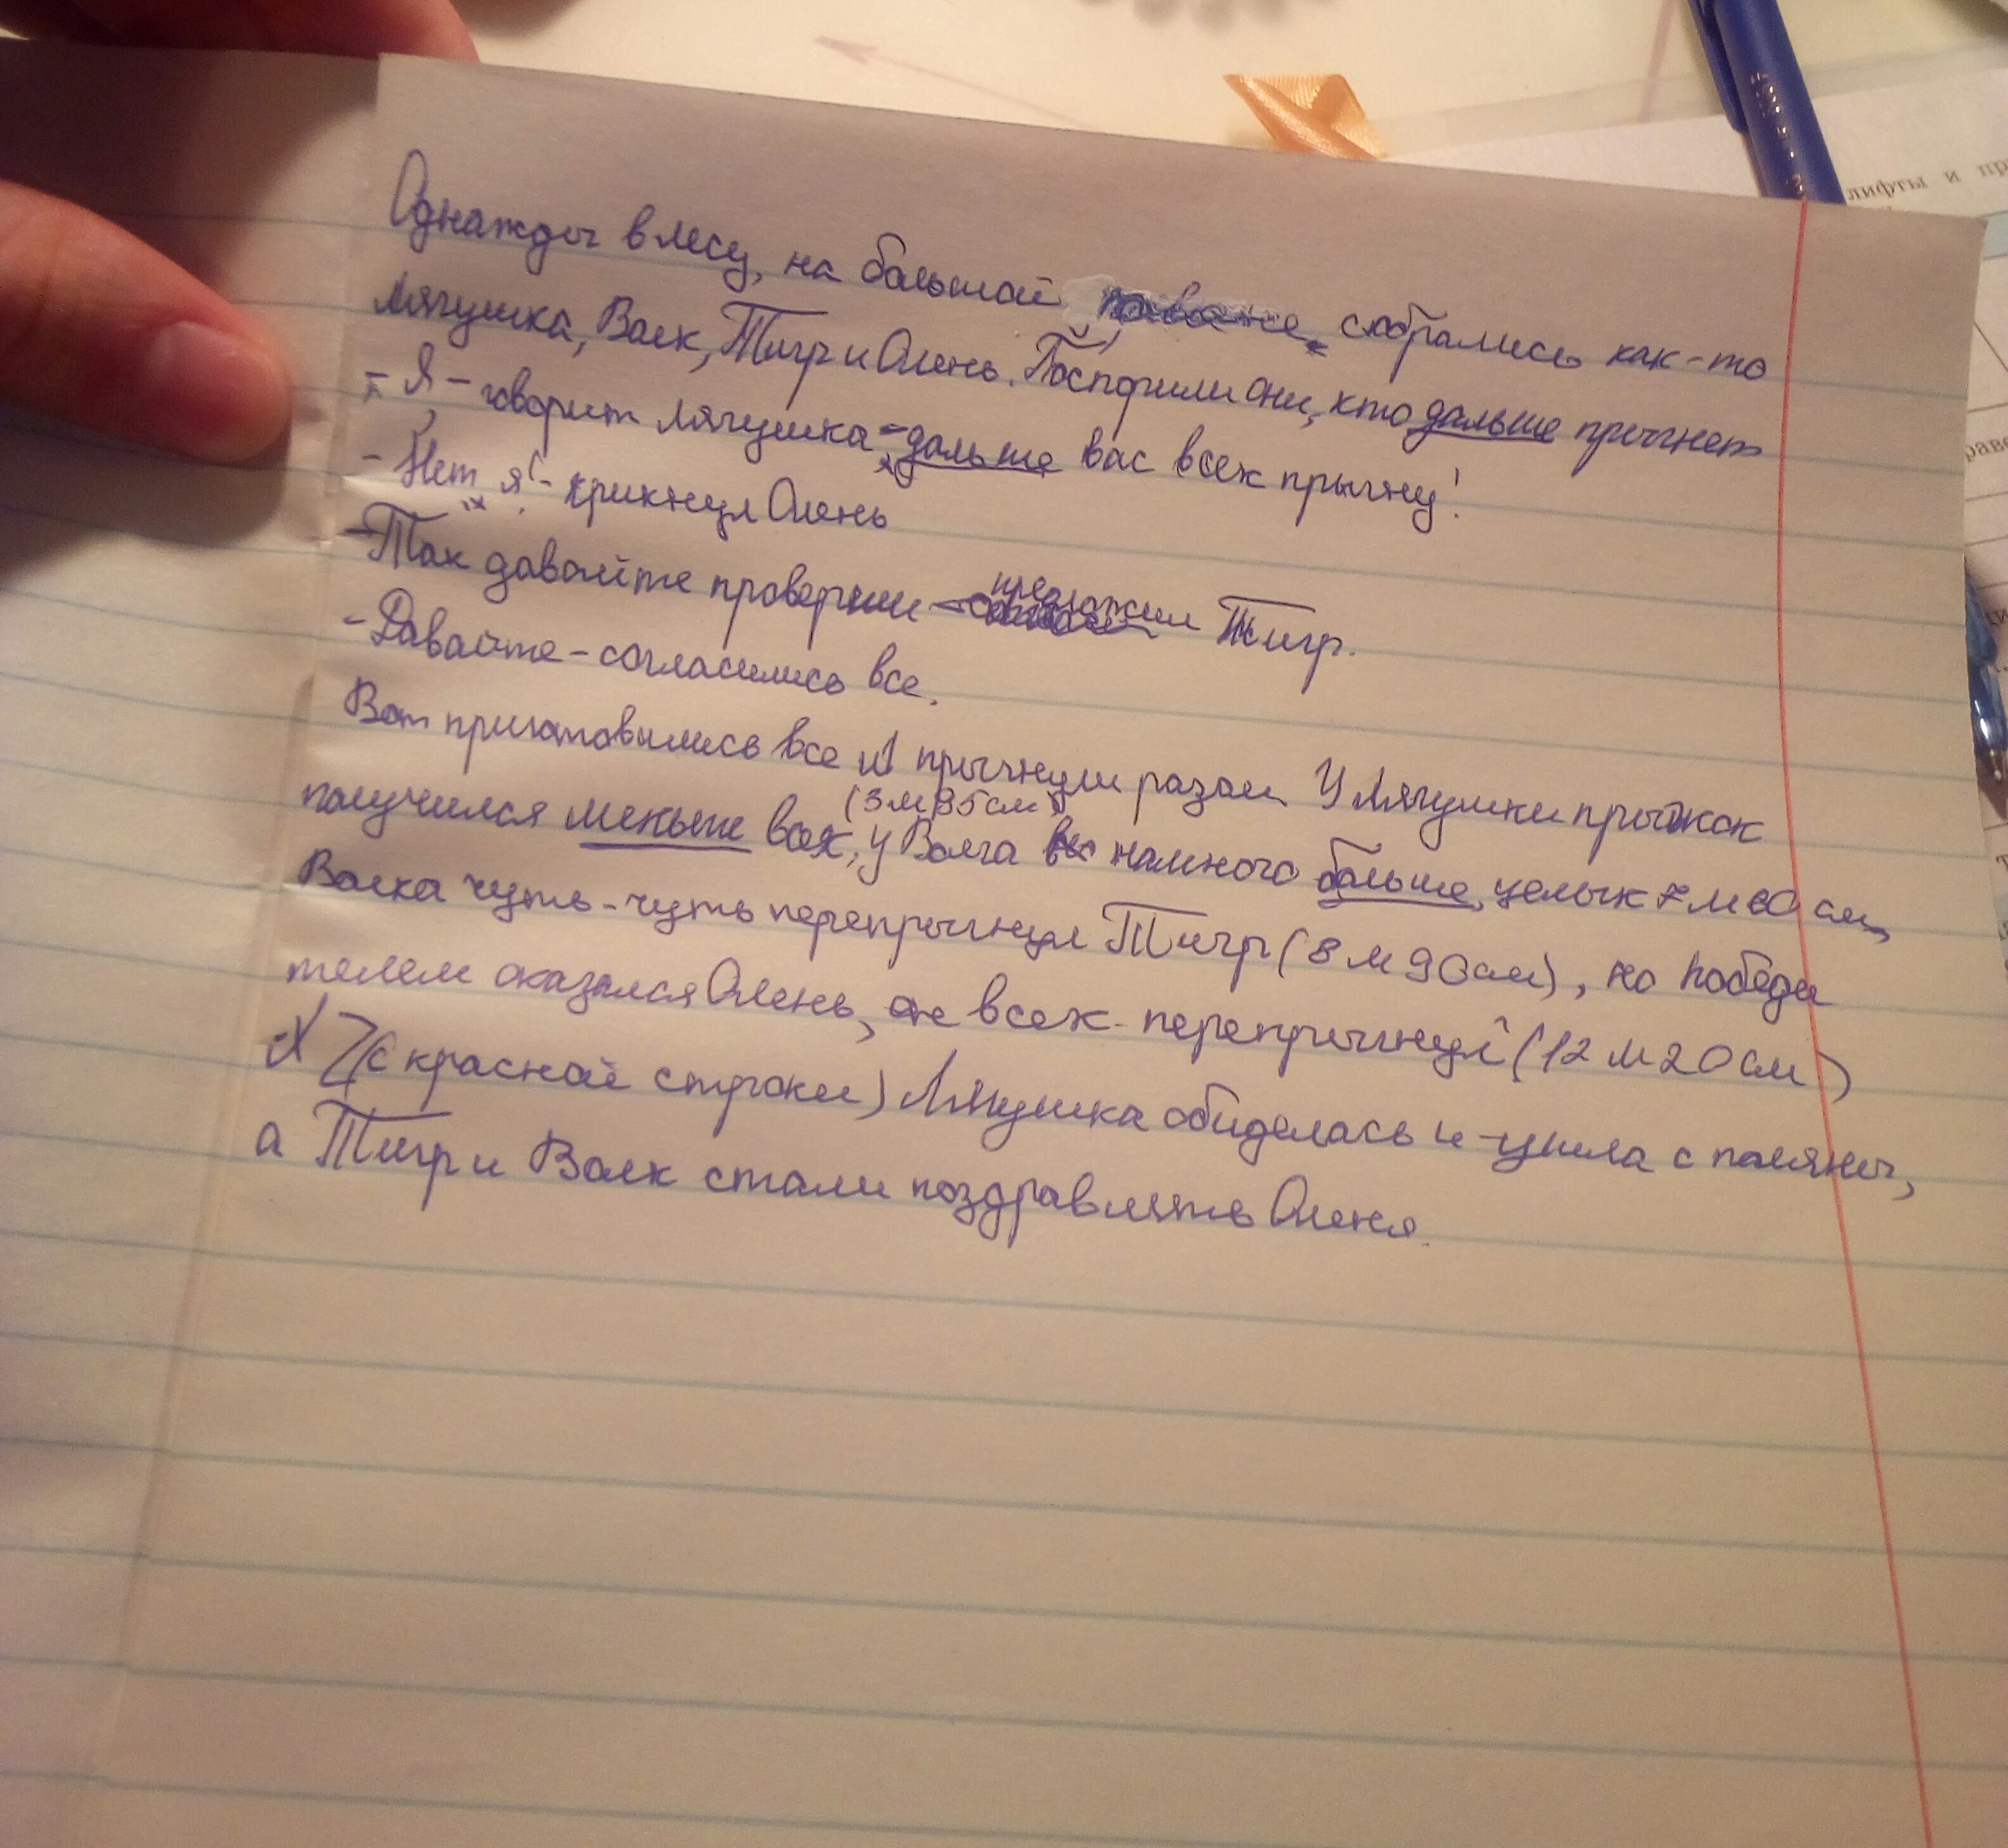 Однажды в лесу, на большой поляне, собрались как-то
Лягушка, Волк, Тигр и Олень. Поспорили они, кто дальше прыгнет
- Я, - говорит лягушка, - дальше вас всех прыгну!
- Нет, я! - крикнул Олень
- Так давайте проверим - предложил Тигр.
- Давайте - согласились все.
Вот приготовились все и прыгнули разом У Лягушки прыжок
(3 м 35 см)
получился меньше всех, у Волга намного больше, целых 7 м 60 см,
Волка чуть-чуть перепрыгнул Тигр (8 м 90 см), но победи
телем оказался Олень, он всех перепрыгнул (12 м 20 см)
(с красной строки) Лягушка обиделась и ушла с поляны,
а Тигр и Волк стали поздравлять Оленя.
лифты и пр